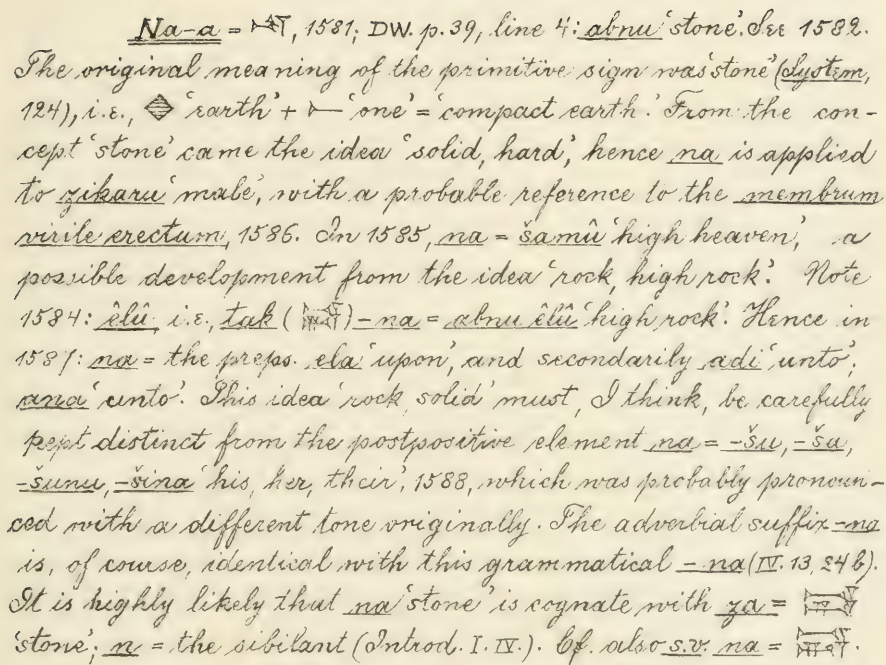 Na-a = 𒈾, 1581; DW. p. 39, line 4: abnu 'stone'. See 1582.
The original meaning of the primitive sign was 'stone' (System,
124), i.e., 'earth' + 'one' = 'compact earth'. From the con-
cept 'stone' came the idea 'solid, hard', hence na is applied
to zikaru 'male', with a probable reference to the membrum
virile erectum, 1586. In 1585, na = šamû 'high heaven', a
possible development from the idea 'rock, high rock'. Note
1584: êlû, i.e., tak ( ) - na = abnu êlû 'high rock'. Hence in
1587: na = the preps. ela 'upon', and secondarily adi 'unto';
ana 'unto'. This idea 'rock, solid' must, I think, be carefully
kept distinct from the postpositive element na = -šu, -ša,
-šunu, -šina 'his, her, their', 1588, which was probably pronoun-
ced with a different tone originally. The adverbial suffix -na
is, of course, identical with this grammatical - na (IV. 13, 24 b).
It is highly likely that na 'stone' is cognate with za =
'stone'; n = the sibilant (Introd. I. IV.). Cf. also s.v. na =